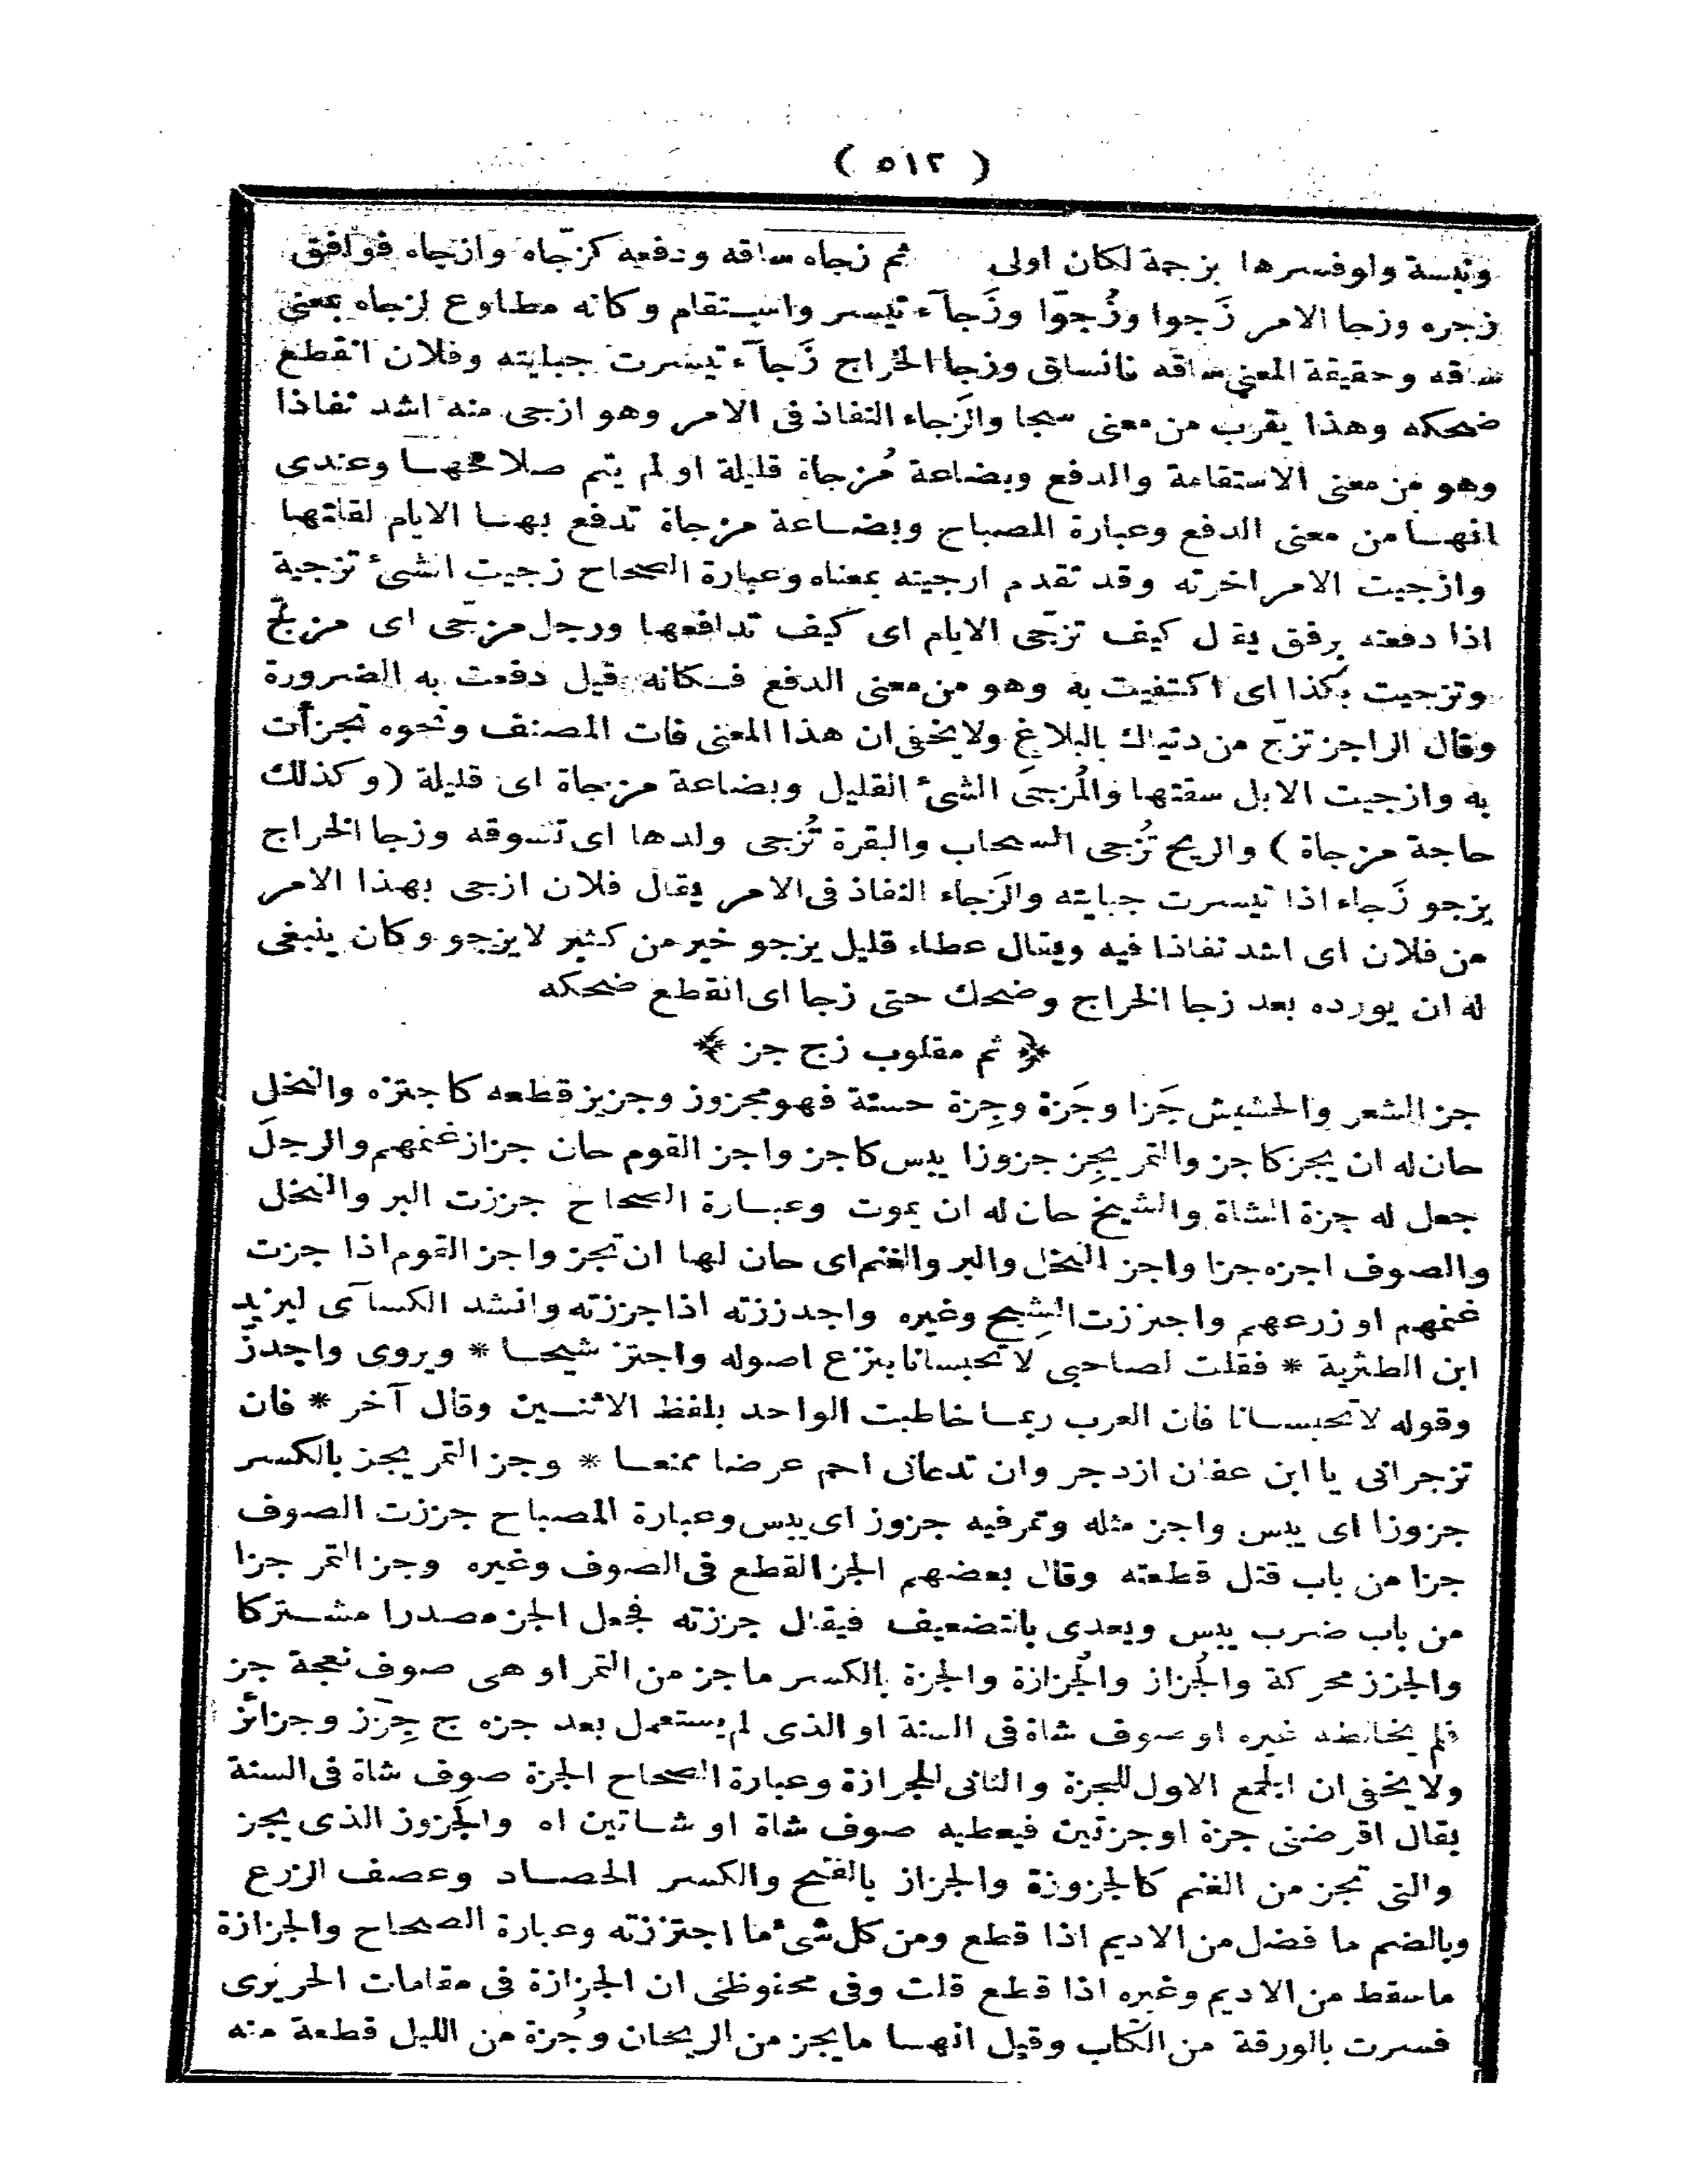 ( ٥١٢ )
ونبسة ولوفسرها بزجمة لكان اولى ثم زجاه ساقه ودفعه كزجّاه وازجاه فوافق
زجره وزجا الامر زَجوا وزُجوّا وزَجآء تيسر واستقام وكانه مطاوع لزجاه بمعنى
ساقه وحقيقة المعنى ساقه فانساق وزجا الخراج زَجآء تيسرت جبايته وفلان انقطع
ضحكه وهذا يقرب من معنى سجا والزَجاء النفاذ فى الامر وهو ازجى منه اشد نفاذا
وهو من معنى الاستقامة والدفع وبضاعة مُزجاة قليلة او لم يتم صلاحهـا وعندى
انهـا من معنى الدفع وعبارة المصباح وبضـاعة مزجاة تدفع بهـا الايام لقلتهـا
وازجيت الامر اخرته وقد تقدم ارجيته بمعناه وعبارة الصحاح زجيت الشئ تزجية
اذا دفعته برفق يقال كيف تزجّى الايام اى كيف تدافعهـا ورجل مزجّى اى مزلج
وتزجيت بكذا اى اكتفيت به وهو من معنى الدفع فـكانه قيل دفعت به الضرورة
وقال الراجز تزجّ من دنياك بالبلاغ ولا يخفى ان هذا المعنى فات المصنف ونحوه تجزأت
به وازجيت الابل سقتها والمُزجَى الشئ القليل وبضاعة مزجاة اى قليلة (وكذلك
حاجة مزجاة ) والريح تُزجى السحاب والبقرة تُزجى ولدها اى تسوقه وزجا الخراج
يزجو زَجاء اذا تيسرت جبايته والزَجاء النفاذ فى الامر يقال فلان ازجى بهذا الامر
من فلان اى اشد نفاذا فيه ويقال عطاء قليل يزجو خير من كثير لا يزجو وكان ينبغى
له ان يورده بعد زجا الخراج وضحك حتى زجا اى انقطع ضحكه
﴿ ثم مقلوب زج جز ﴾
جز الشعر والحشيش جَزا وجَزة وجِزة حسنة فهو مجزوز وجزيز قطعه كاجتزه والنخل
حان له ان يجز كاجز والتمر يجِز جزوزا يبس كاجز واجز القوم حان جزاز غنمهم والرجلَ
جعل له جزة الشاة والشيخ حان له ان يموت وعبـارة الصحاح جززت البر والنخل
والصوف اجزه جزا واجز النخل والبر والغنم اى حان لها ان تجز واجز القوم اذا جزت
غنمهم او زرعهم واجتززت الشِيح وغيره واجدززته اذا جززته وانشد الكسآى ليزيد
ابن الطثرية * فقلت لصاحبى لا تحبسانا بنزع اصوله واجتز شيحـا * ويروى واجدزّ
وقوله لا تحبسـانا فان العرب ربمـا خاطبت الواحد بلفظ الاثنـين وقال آخر * فان
تزجرانى يا ابن عفان ازدجر وان تدعانى احم عرضا ممنعـا * وجز التمر يجز بالكسر
جزوزا اى يبس واجز مثله وتمر فيه جزوز اى يبس وعبارة المصباح جززت الصوف
جزا من باب قتل قطعته وقال بعضهم الجز القطع فى الصوف وغيره وجز التمر جزا
من باب ضرب يبس ويعدى بالتضعيف فيقال جززته فجعل الجز مصدرا مشـتركا
والجزز محركة والجُزاز والجُزازة والجزة بالكسر ما جز من التمر او هى صوف نعجة جز
فلم يخالطه غيره او صوف شاة فى السنة او الذى لم يستعمل بعد جزه ج جِزَز وجزائز
ولا يخفى ان الجمع الاول للجزة والثانى للجزازة وعبارة الصحاح الجزة صوف شاة فى السنة
يقال اقرضنى جزة او جزتين فيعطيه صوف شاة او شـاتين اه والجَزوز الذى يجز
والتى تجز من الغنم كالجزوزة والجزاز بالفتح والكسر الحصـاد وعصف الزرع
وبالضم ما فضل من الاديم اذا قطع ومن كل شئ ما اجتززته وعبارة الصحاح والجزازة
ما سقط من الاديم وغيره اذا قطع قلت وفى محفوظى ان الجزازة فى مقامات الحريرى
فسرت بالورقة من الكتاب وقيل انهـا ما يجز من الريحان وجُزة من الليل قطعة منه